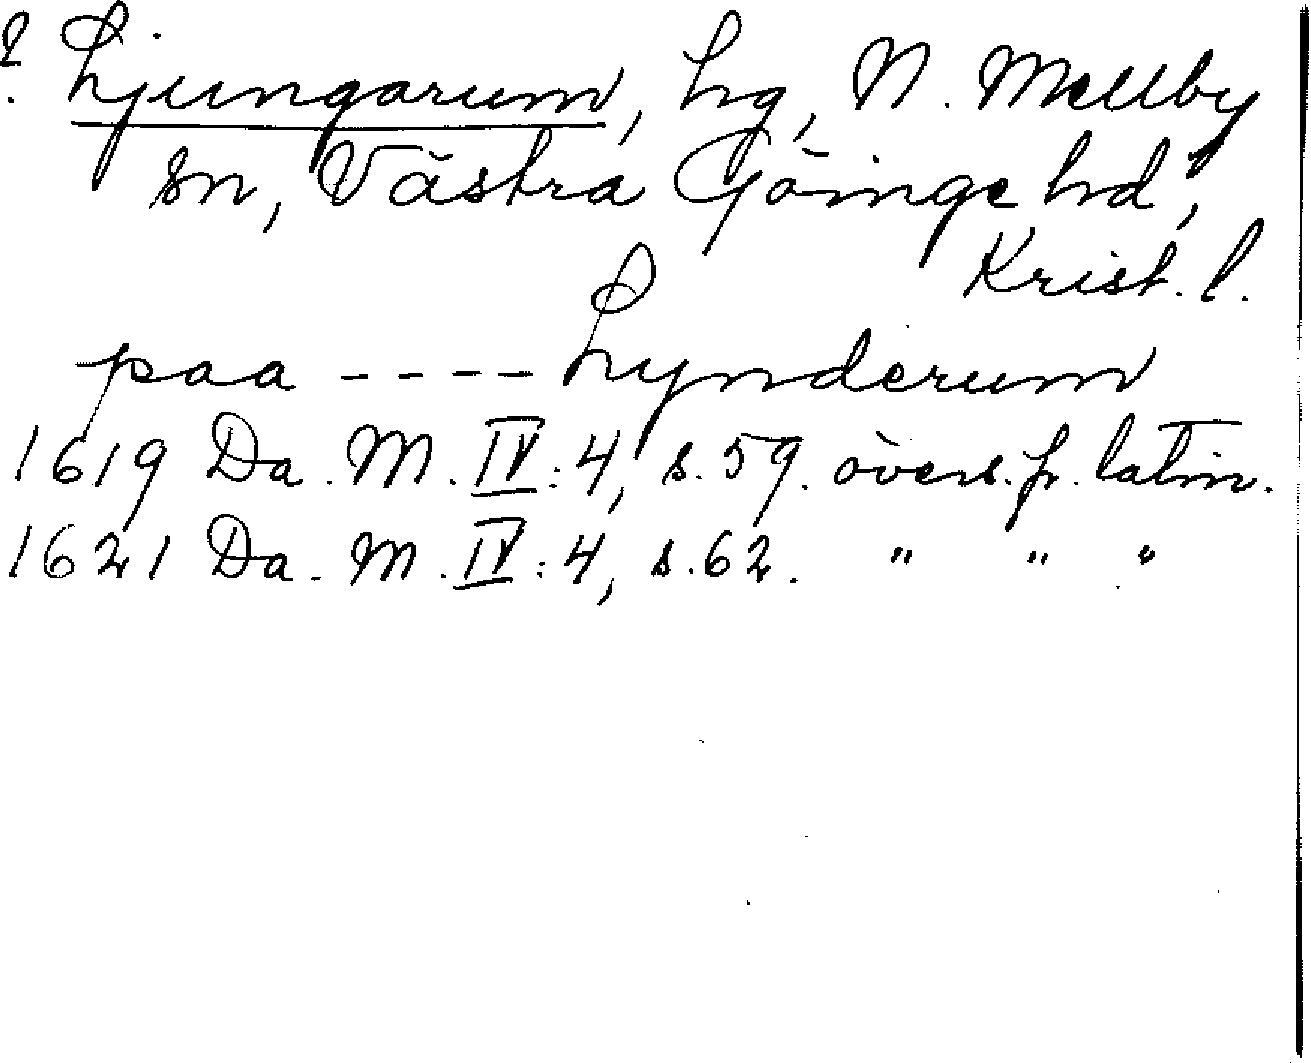 ? Ljungarum, hg, N. Mellby
sn, Västra Göinge hd,
Krist. l.
paa ---- Lynderum
1619 Da. M. IV: 4, s. 59. övers. fr. latin.
1621 Da. M. IV: 4, s. 62. " " "